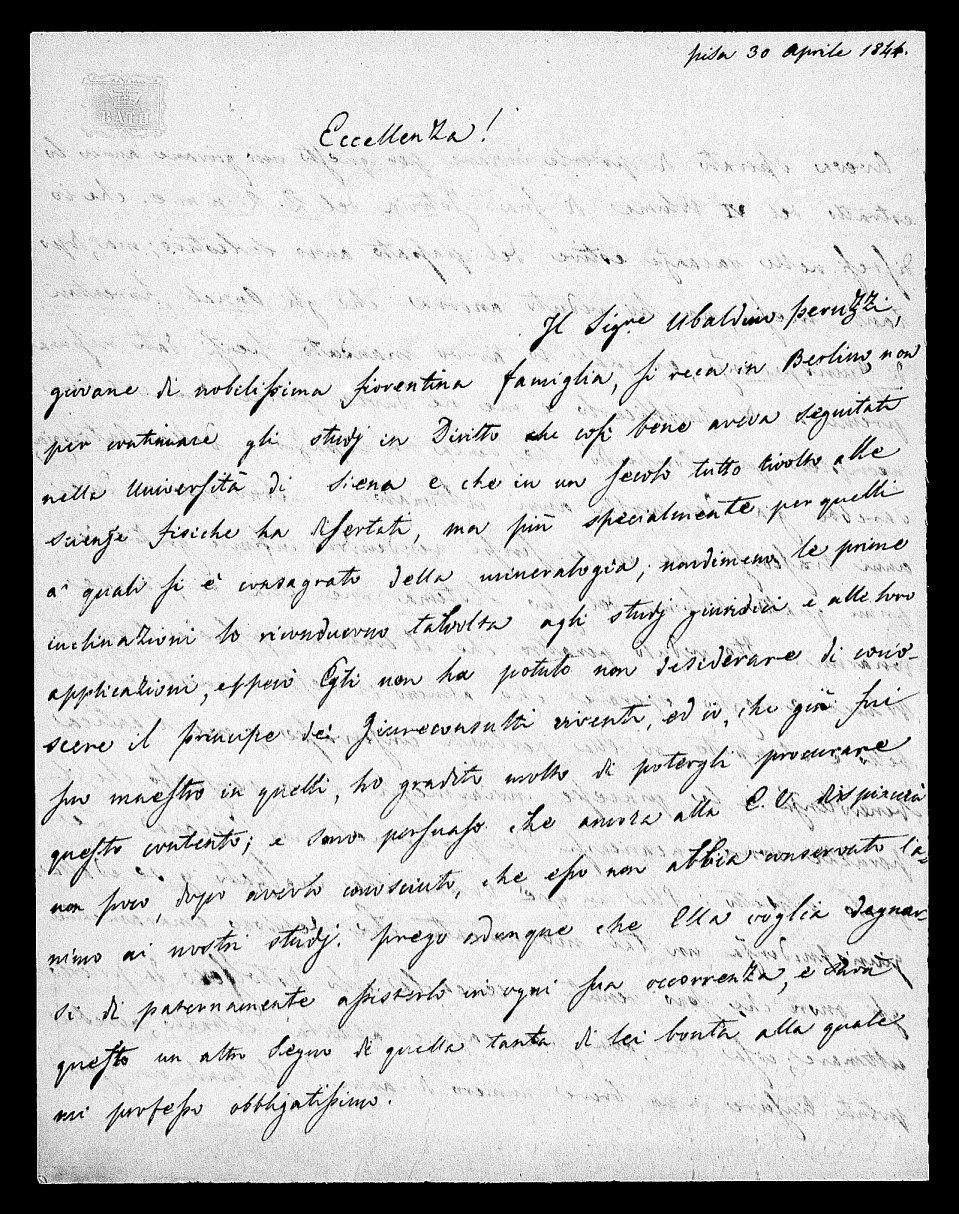 Pisa 30 Aprile 1844.
BATH
Eccellenza!
Il Sigre Ubaldino Peruzzi,
giovane di nobilissima fiorentina famiglia, si reca in Berlino, non
per continuare gli studj in Diritto che così bene aveva seguitati
nella Università di Siena e che in un secolo tutto rivolto alle
scienze fisiche ha disertati, ma più specialmente per quelli
a' quali si è consagrato della mineralogia; nondimeno le prime
inclinazioni lo riconducono talvolta agli studj giuridici e alle loro
applicazioni, e perciò Egli non ha potuto non desiderare di cono-
scere il principe dei Giureconsulti viventi, ed io, che già fui
suo maestro in quelli, ho gradito molto di potergli procurare
questo contento; e sono persuaso che ancora alla E. V. dispiacerà
non poco, dopo averlo conosciuto, che esso non abbia conservato l'a-
nimo ai nostri studj. Prego adunque che Ella voglia degnar-
si di paternamente assisterlo in ogni sua occorrenza, e sarà
questo un altro segno di quella tanta di lei bontà alla quale
mi professo obbligatissimo.